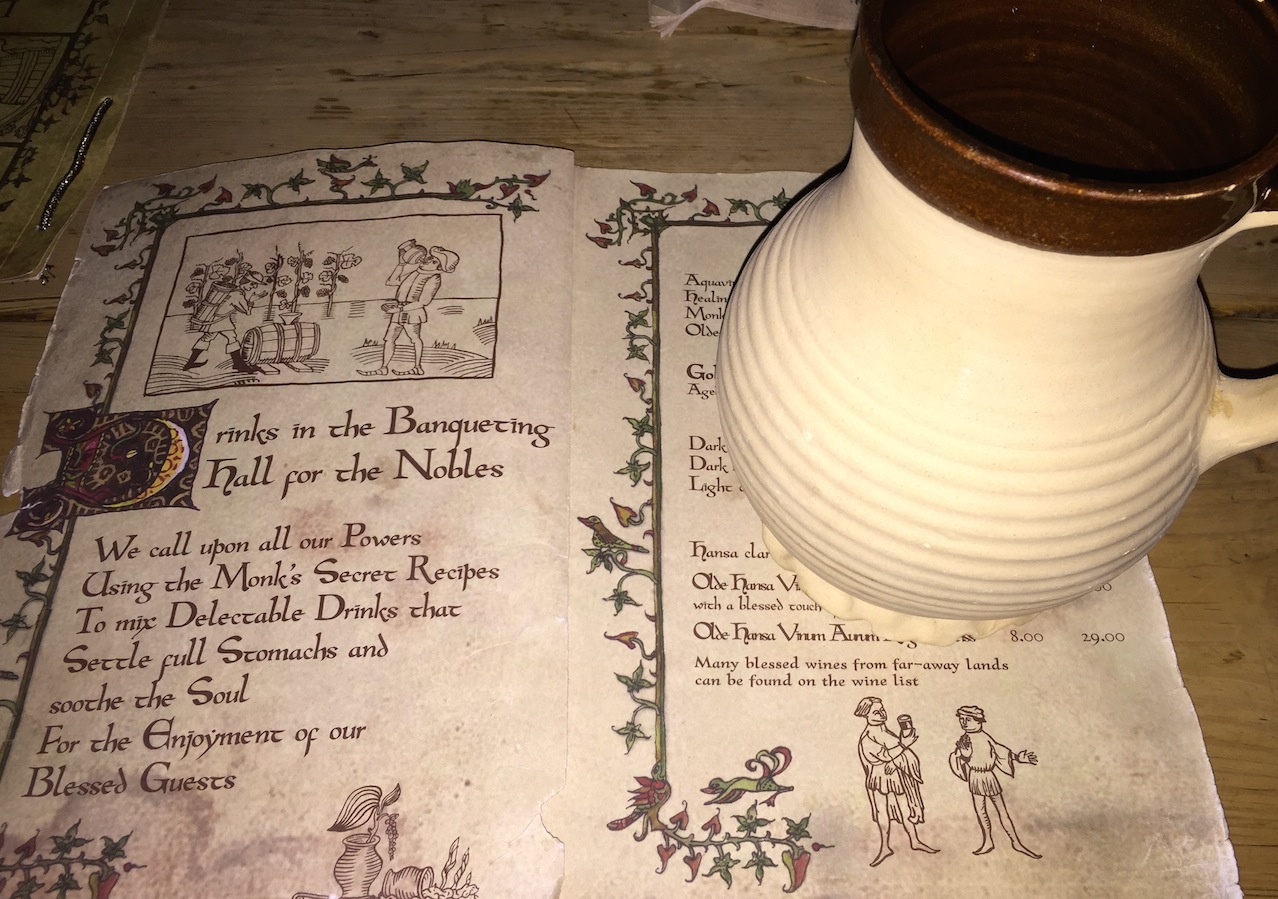 Drinks in the Banqueting
Hall for the Nobles
We call upon all our Powers
Using the Monk's Secret Recipes
To mix Delectable Drinks that
Settle full Stomachs and
soothe the Soul
For the Enjoyment of our
Blessed Guests
Olde
Dark
Dark
Light
Hansa
Olde Hansa
with a blessed touch
Olde Hansa Vinum Aurum 8.00 29.00
Many blessed wines from far-away lands
can be found on the wine list